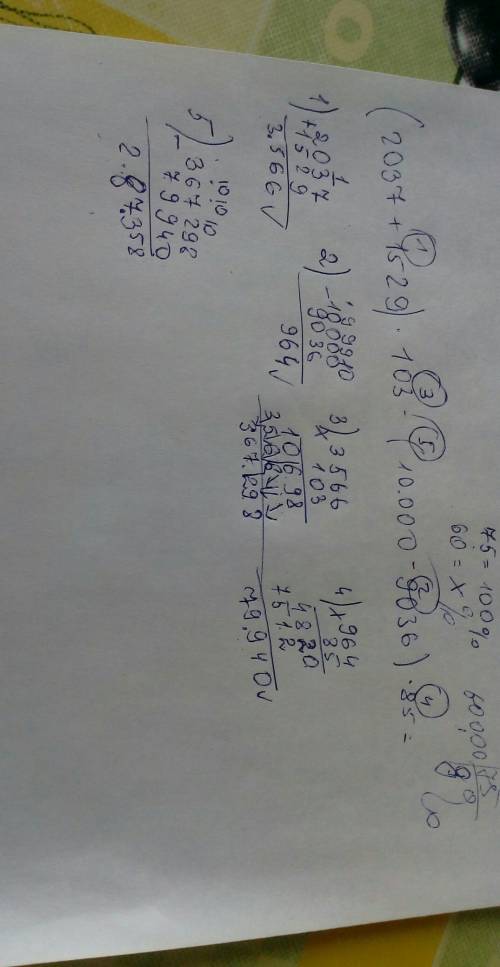 75 = 100%
60 = x %
(2037 + 1529) · 103 - (10.000 - 9036) · 85 =
1 3 5 2 4
1) 1
2037
+1529
3.566 √
2) 99910
-10000
9036
964 √
3) 3566
x 103
10698
3566
367.298
4) 964
x 85
4820
7512
79.940 √
5) 10 10 10
367298
- 79940
2.87.358